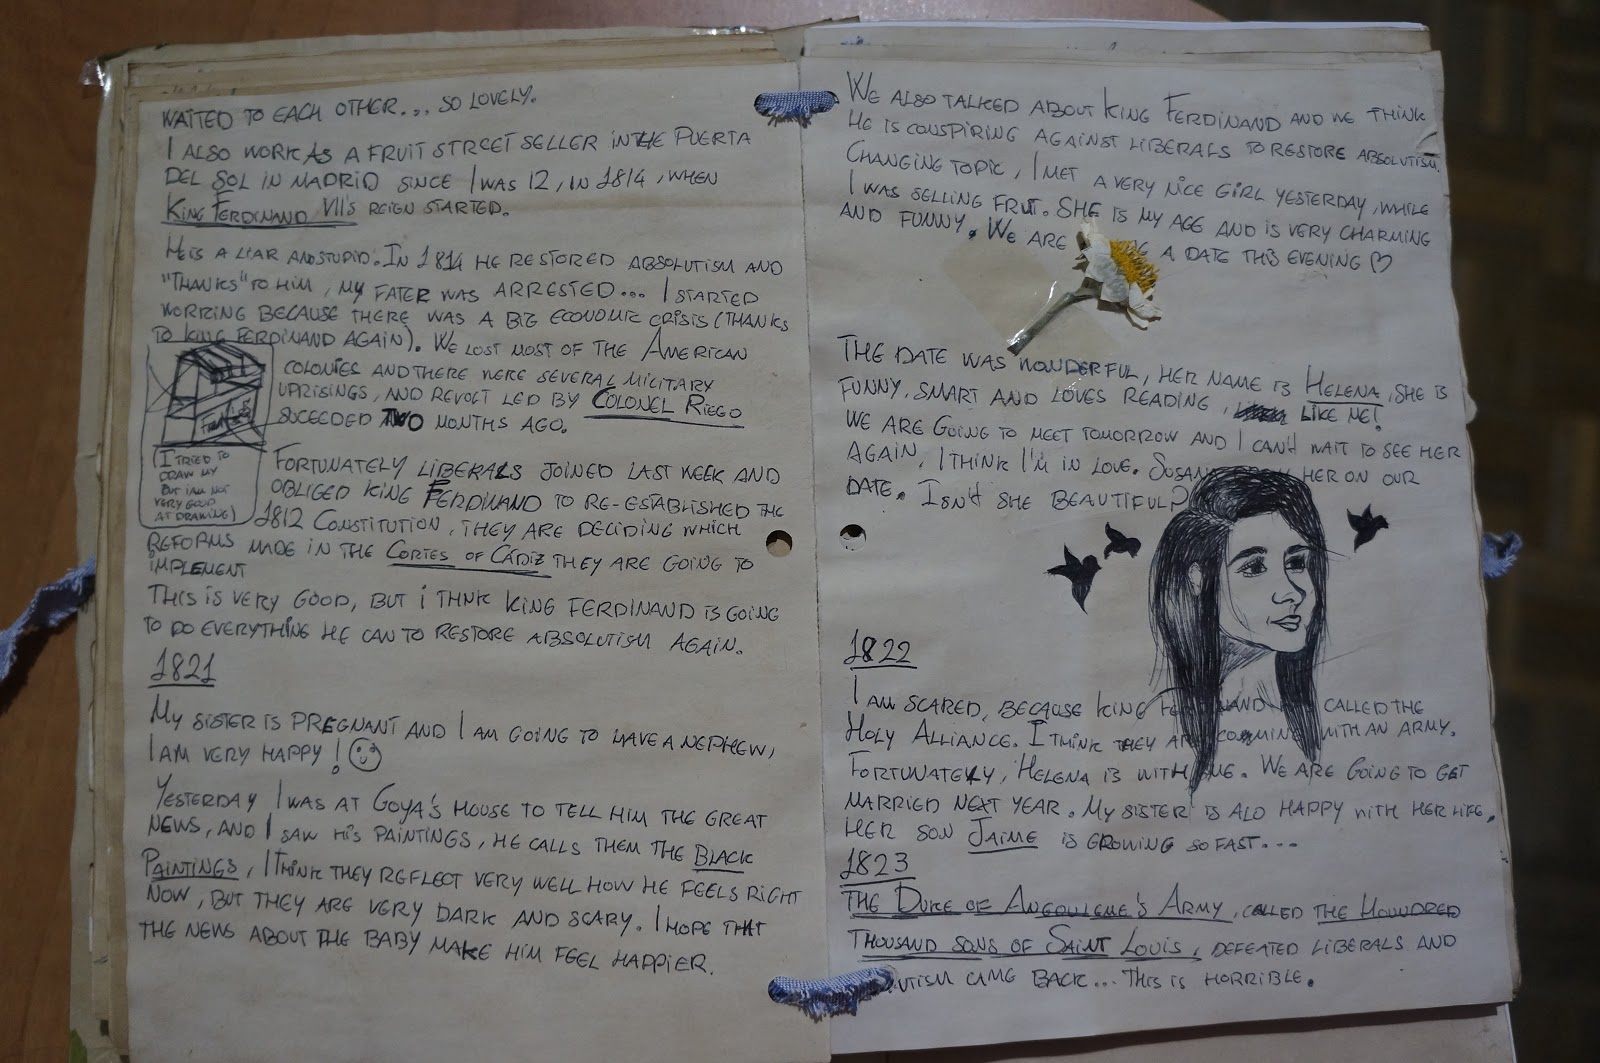 WAITED TO EACH OTHER... SO LOVELY.
I ALSO WORK AS A FRUIT STREET SELLER IN THE PUERTA
DEL SOL IN MADRID SINCE I WAS 12, IN 1814, WHEN
KING FERDINAND VII'S REIGN STARTED.
HE IS A LIAR AND STUPID. IN 1814 HE RESTORED ABSOLUTISM AND
"THANKS" TO HIM, MY FATER WAS ARRESTED... I STARTED
WORKING BECAUSE THERE WAS A BIG ECONOMIC CRISIS (THANKS
TO KING FERDINAND AGAIN). WE LOST MOST OF THE AMERICAN
COLONIES AND THERE WERE SEVERAL MILITARY
UPRISINGS, AND REVOLT LED BY COLONEL RIEGO
SUCEEDED TWO MONTHS AGO.
(I TRIED TO
DRAW MY
BUT I AM NOT
VERY GOOD
AT DRAWING)
FORTUNATELY LIBERALS JOINED LAST WEEK AND
OBLIGED KING FERDINAND TO RE-ESTABLISHED THE
1812 CONSTITUTION, THEY ARE DECIDING WHICH
REFORMS MADE IN THE CORTES OF CÁDIZ THEY ARE GOING TO
IMPLEMENT
THIS IS VERY GOOD, BUT I THNK KING FERDINAND IS GOING
TO DO EVERYTHING HE CAN TO RESTORE ABSOLUTISM AGAIN.
1821
MY SISTER IS PREGNANT AND I AM GOING TO HAVE A NEPHEW,
I AM VERY HAPPY!
YESTERDAY I WAS AT GOYA'S HOUSE TO TELL HIM THE GREAT
NEWS, AND I SAW HIS PAINTINGS, HE CALLS THEM THE BLACK
PAINTINGS, I THINK THEY REFLECT VERY WELL HOW HE FEELS RIGHT
NOW, BUT THEY ARE VERY DARK AND SCARY. I HOPE THAT
THE NEWS ABOUT THE BABY MAKE HIM FEEL HAPPIER.
WE ALSO TALKED ABOUT KING FERDINAND AND WE THINK
HE IS CONSPIRING AGAINST LIBERALS TO RESTORE ABSOLUTISM.
CHANGING TOPIC, I MET A VERY NICE GIRL YESTERDAY, WHILE
I WAS SELLING FRUIT. SHE IS MY AGE AND IS VERY CHARMING
AND FUNNY. WE ARE A DATE THIS EVENING ♡
THE DATE WAS WONDERFUL, HER NAME IS HELENA, SHE IS
FUNNY, SMART AND LOVES READING, LIKE ME!
WE ARE GOING TO MEET TOMORROW AND I CAN'T WAIT TO SEE HER
AGAIN, I THINK I'M IN LOVE. SUSANA HER ON OUR
DATE. ISN'T SHE BEAUTIFUL?
1822
I AM SCARED, BECAUSE KING FERDINAND CALLED THE
HOLY ALLIANCE. I THINK THEY ARE COMING WITH AN ARMY.
FORTUNATELY, HELENA IS WITH ME. WE ARE GOING TO GET
MARRIED NEXT YEAR. MY SISTER IS ALO HAPPY WITH HER LIFE,
HER SON JAIME IS GROWING SO FAST...
1823
THE DUKE OF ANGOULEME'S ARMY, CALLED THE HOUNDRED
THOUSAND SONS OF SAINT LOUIS, DEFEATED LIBERALS AND
UTISM CAME BACK... THIS IS HORRIBLE.